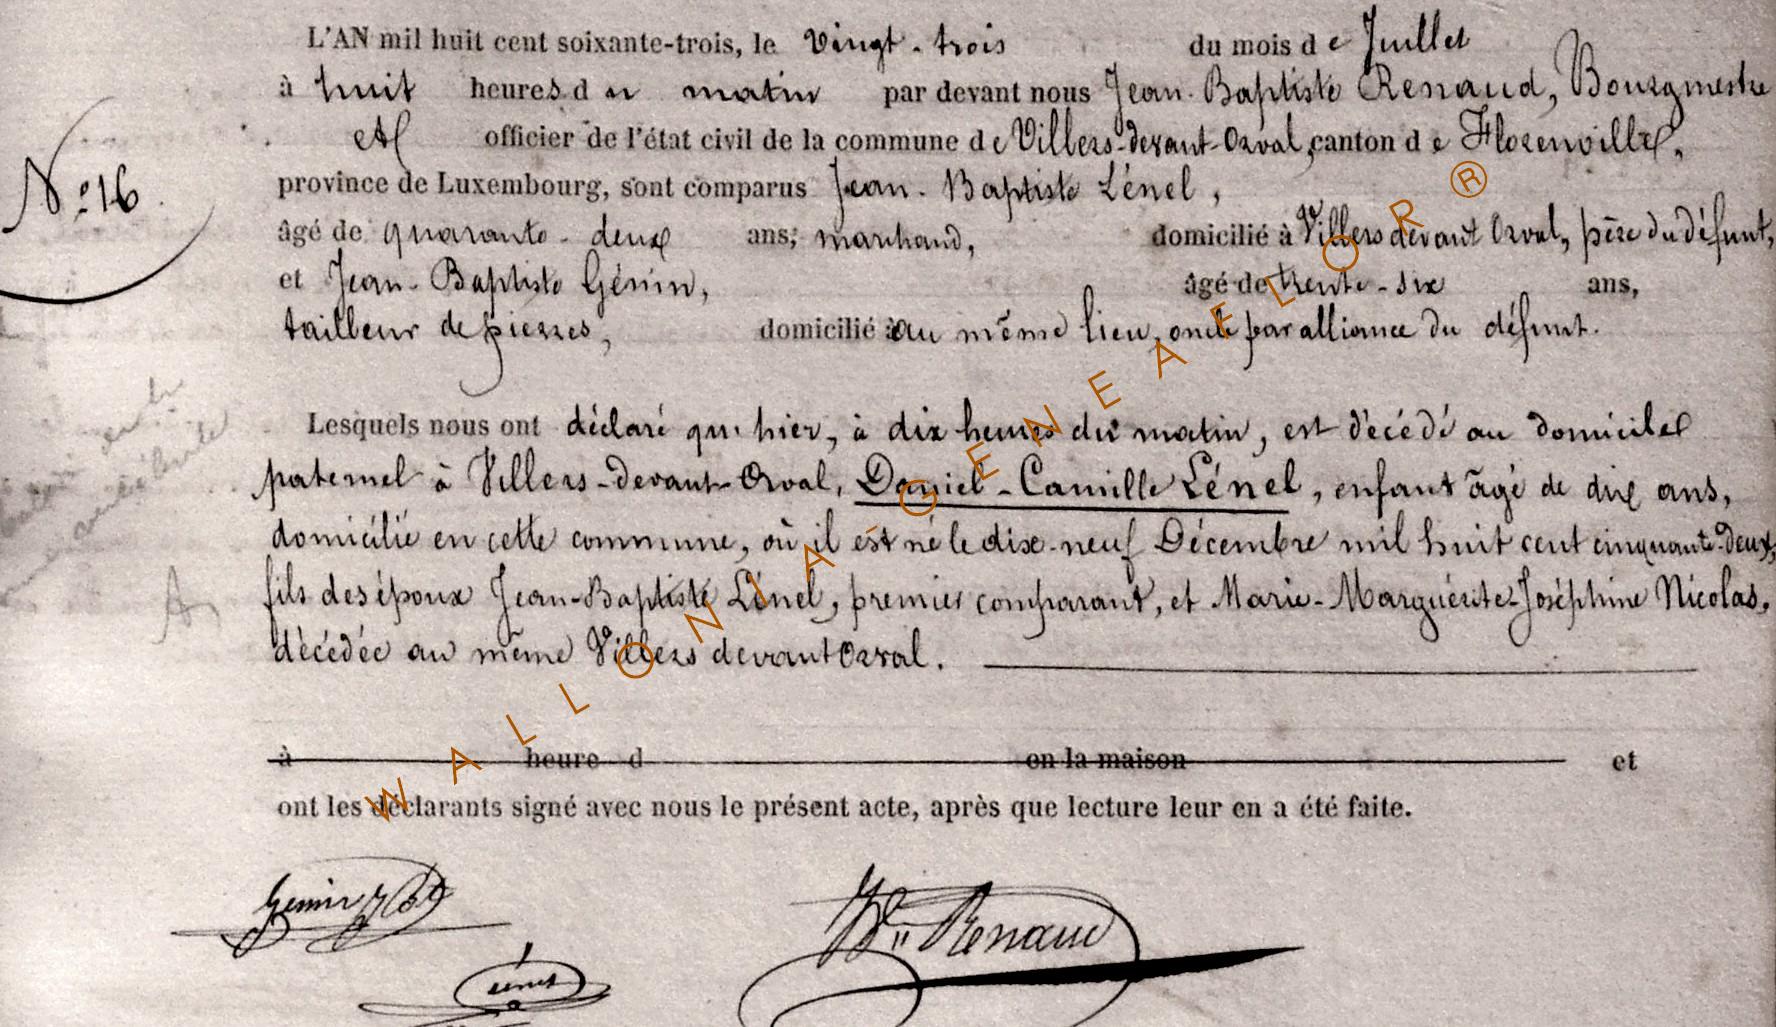 L'AN mil huit cent soixante-trois, le vingt-trois du mois de Juillet
à huit heures du matin par devant nous Jean-Baptiste Renaud, Bourgmestre
et officier de l'état civil de la commune de Villers-devant-Orval, canton de Florenville,
N° 16
province de Luxembourg, sont comparus Jean-Baptiste Lénel,
âgé de quarante-deux ans, marchand, domicilié à Villers devant Orval, père du défunt,
et Jean-Baptiste Génin, âgé de trente-six ans,
tailleur de pierres, domicilié à au même lieu, oncle par alliance du défunt.
Lesquels nous ont déclaré qu'hier, à dix heures du matin, est décédé au domicile
paternel à Villers-devant-Orval, Daniel-Camille Lénel, enfant âgé de dix ans,
domicilié en cette commune, où il est né le dix-neuf Décembre mil huit cent cinquante-deux,
fils des époux Jean-Baptiste Lénel, premier comparant, et Marie-Marguérite-Joséphine Nicolas,
décédée au même Villers devant Orval.
à heure d en la maison et
ont les déclarants signé avec nous le présent acte, après que lecture leur en a été faite.
Génin
Renaud
Lénel
WALLONIA GENEAFLOR ®